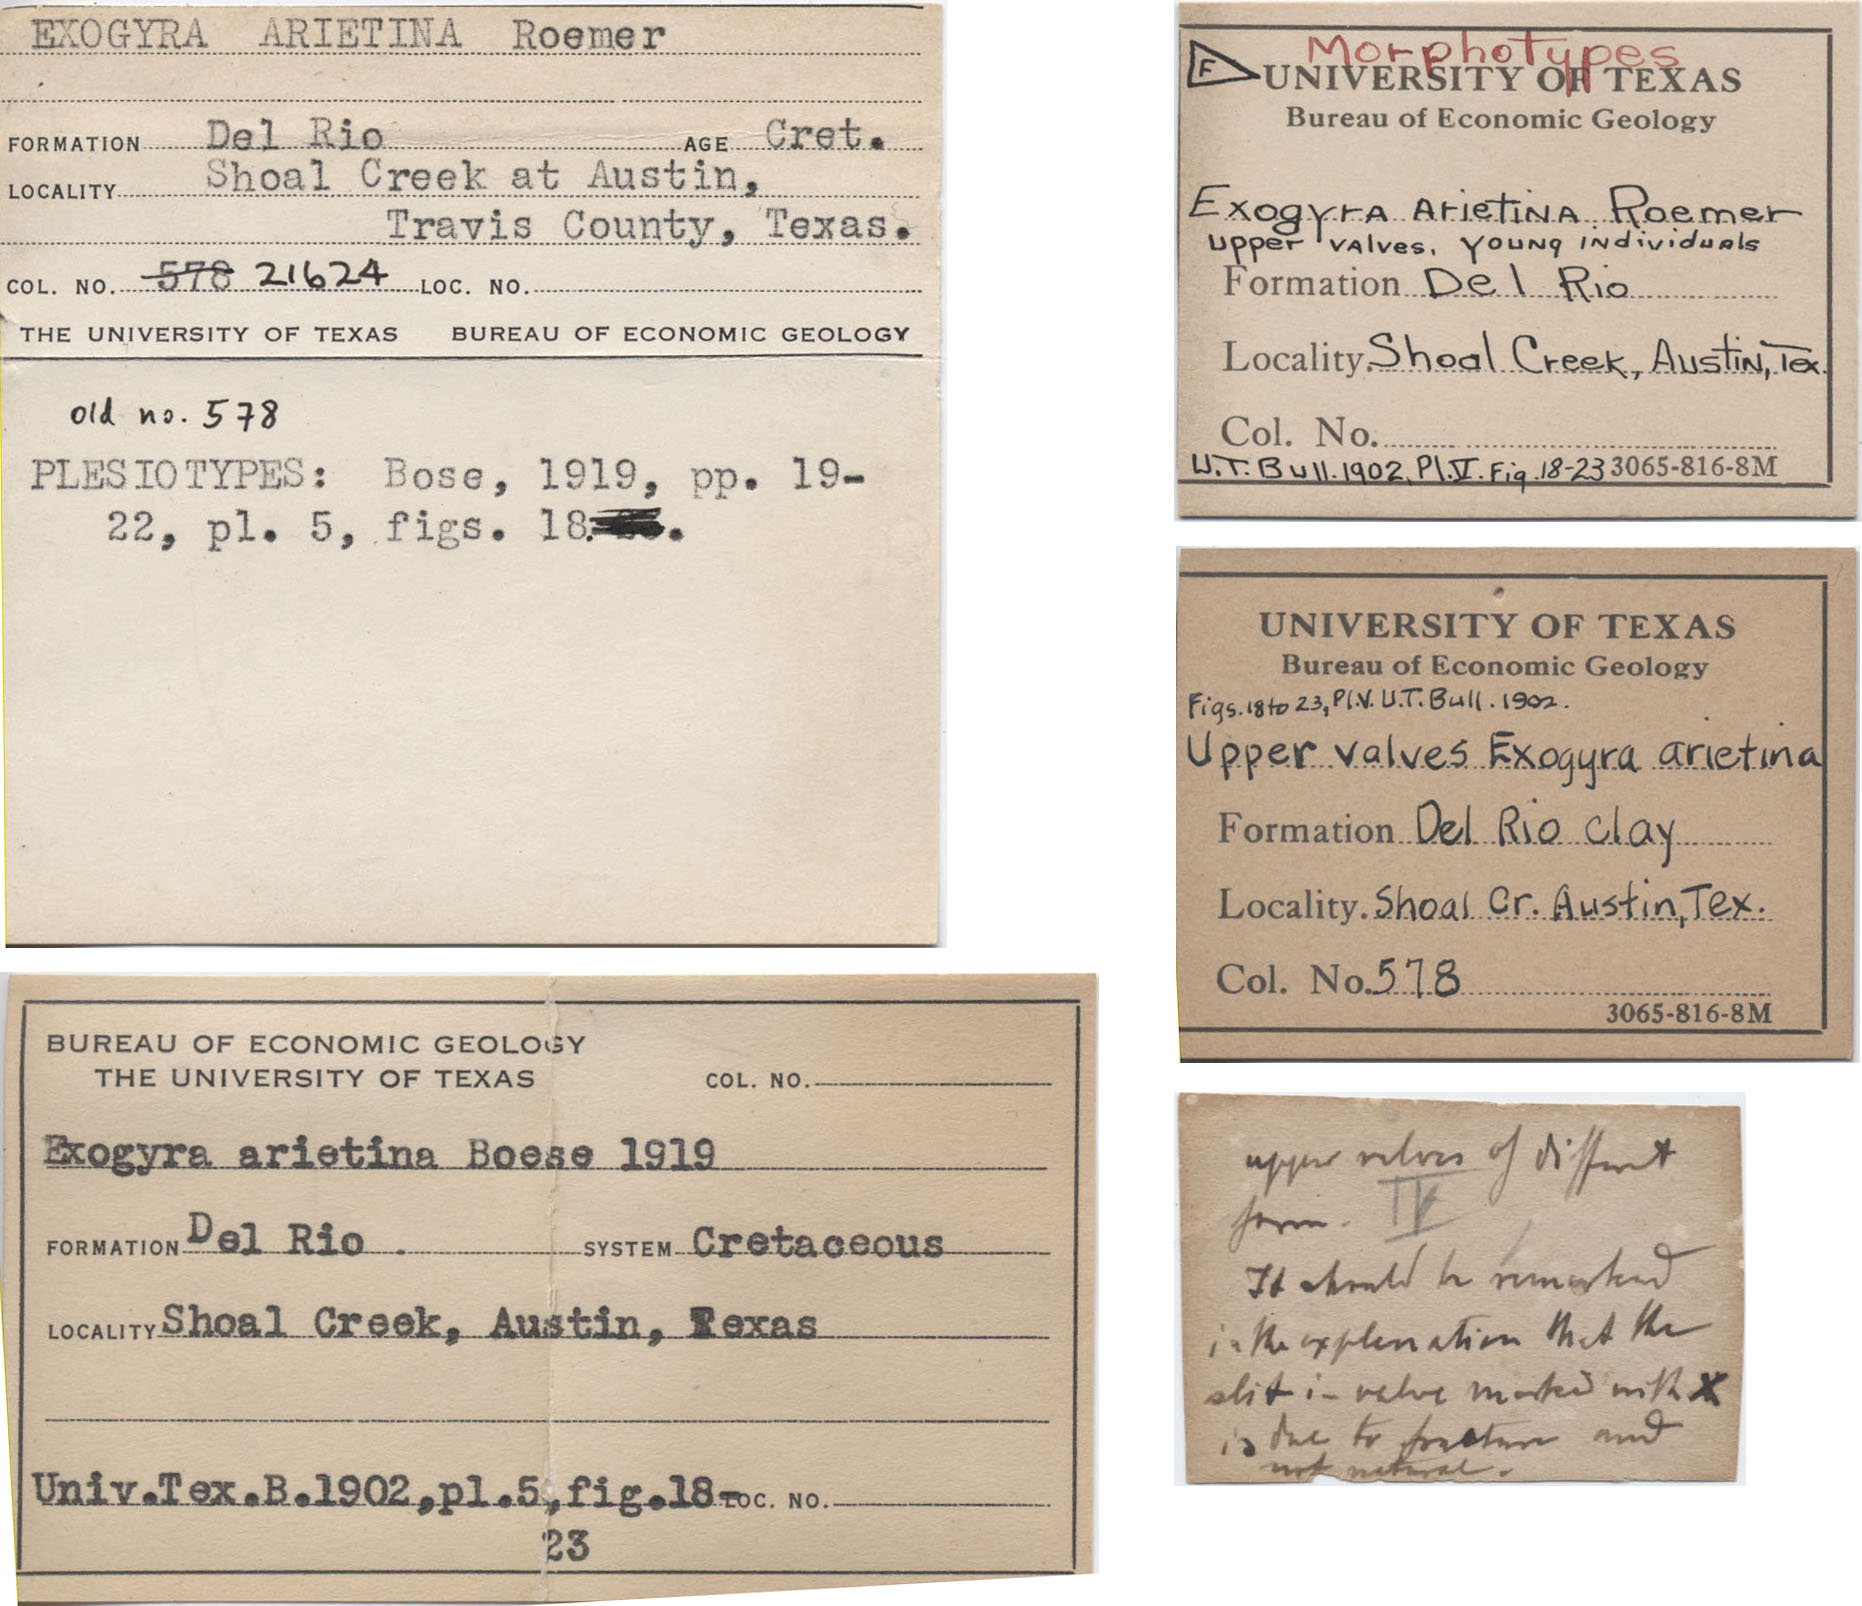 EXOGYRA ARIETINA Roemer
FORMATION Del Rio AGE Cret.
LOCALITY Shoal Creek at Austin,
Travis County, Texas.
COL. NO. 578 21624 LOC. NO.
THE UNIVERSITY OF TEXAS BUREAU OF ECONOMIC GEOLOGY
old no. 578
PLESIOTYPES: Bose, 1919, pp. 19-
22, pl. 5, figs. 18.
BUREAU OF ECONOMIC GEOLOGY
THE UNIVERSITY OF TEXAS COL. NO.
Exogyra arietina Boese 1919
FORMATION Del Rio SYSTEM Cretaceous
LOCALITY Shoal Creek, Austin, Texas
Univ.Tex.B.1902,pl.5,fig.18- LOC. NO.
23
Morphotypes
F UNIVERSITY OF TEXAS
Bureau of Economic Geology
Exogyra Arietina Roemer
upper valves, young individuals
Formation Del Rio
Locality Shoal Creek, Austin, Tex.
Col. No.
U.T. Bull. 1902, Pl. V. Fig. 18-23 3065-816-8M
UNIVERSITY OF TEXAS
Bureau of Economic Geology
Figs. 18 to 23, Pl.V. U.T. Bull. 1902.
Upper valves Exogyra arietina
Formation Del Rio clay
Locality. Shoal Cr. Austin, Tex.
Col. No. 578
3065-816-8M
upper valves of different
form. IV
It should be remarked
in the explanation that the
slit in valve marked with X
is due to fracture and
not natural.